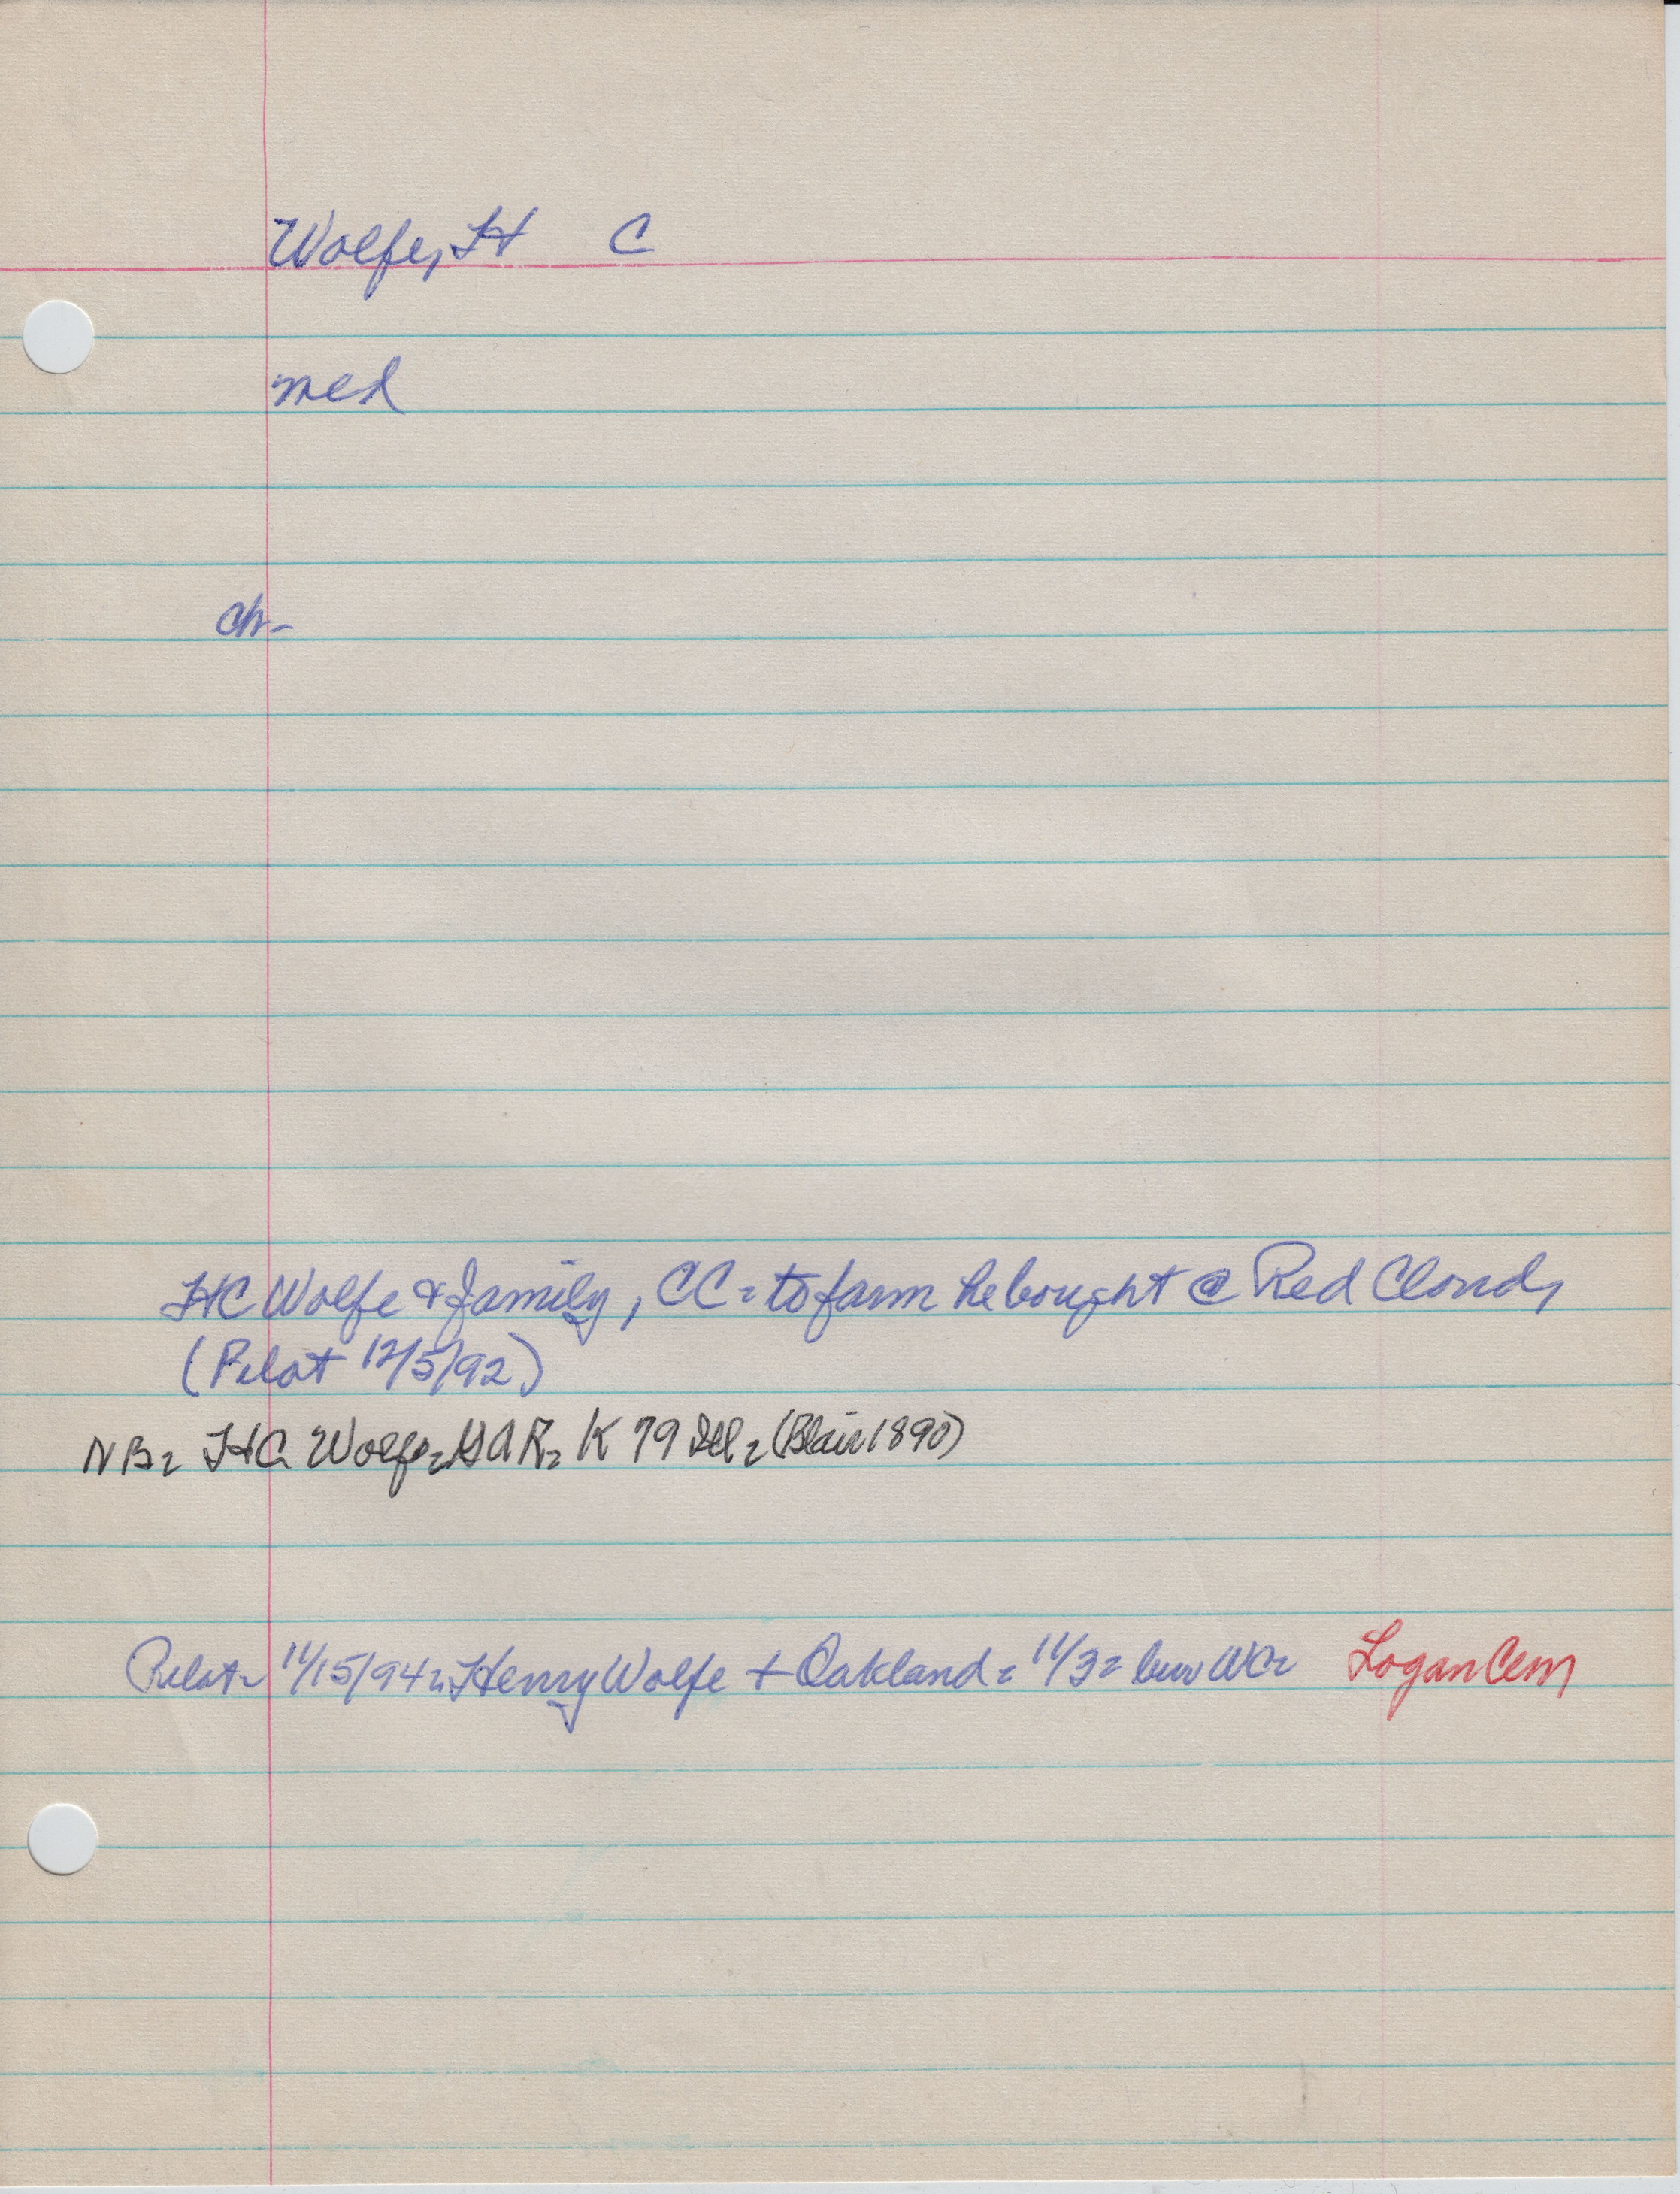 Wolfe, H C
med
ch-
HC Wolfe & family, CC = to farm he bought @ Red Cloud,
(Pilot 12/5/92)
NB = HC Wolfe = GAR = K 79 Ill = (Blair 1890)
Pilot = 11/15/94 = Henry Wolfe + Oakland = 11/3 = bur WC = Logan Cem